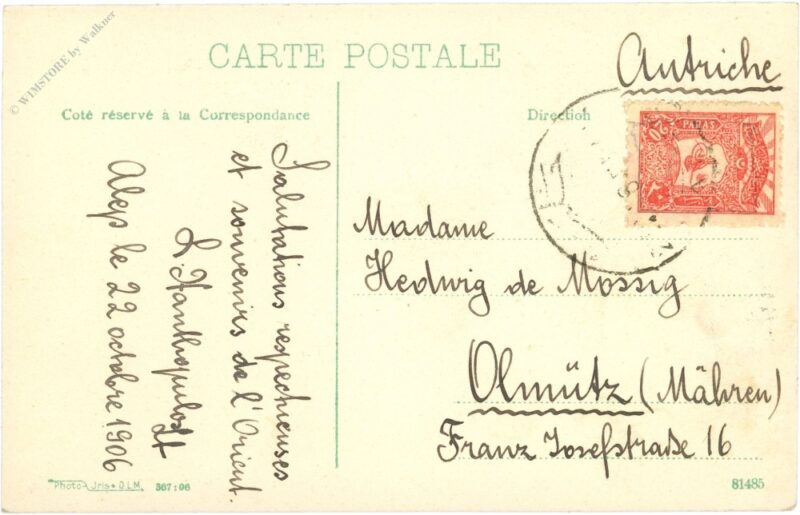 © WIMSTORE by Walkner
CARTE POSTALE
Coté réservé à la Correspondance
Direction
Autriche
20 PARAS
Salutations respectueuses
et souvenirs de l'Orient.
Alep le 22 octobre 1906
Madame
Hedwig de Mossig
Olmütz (Mähren)
Franz Josefstraße 16
Photo-Iris-D.L.M. 567:06
81485